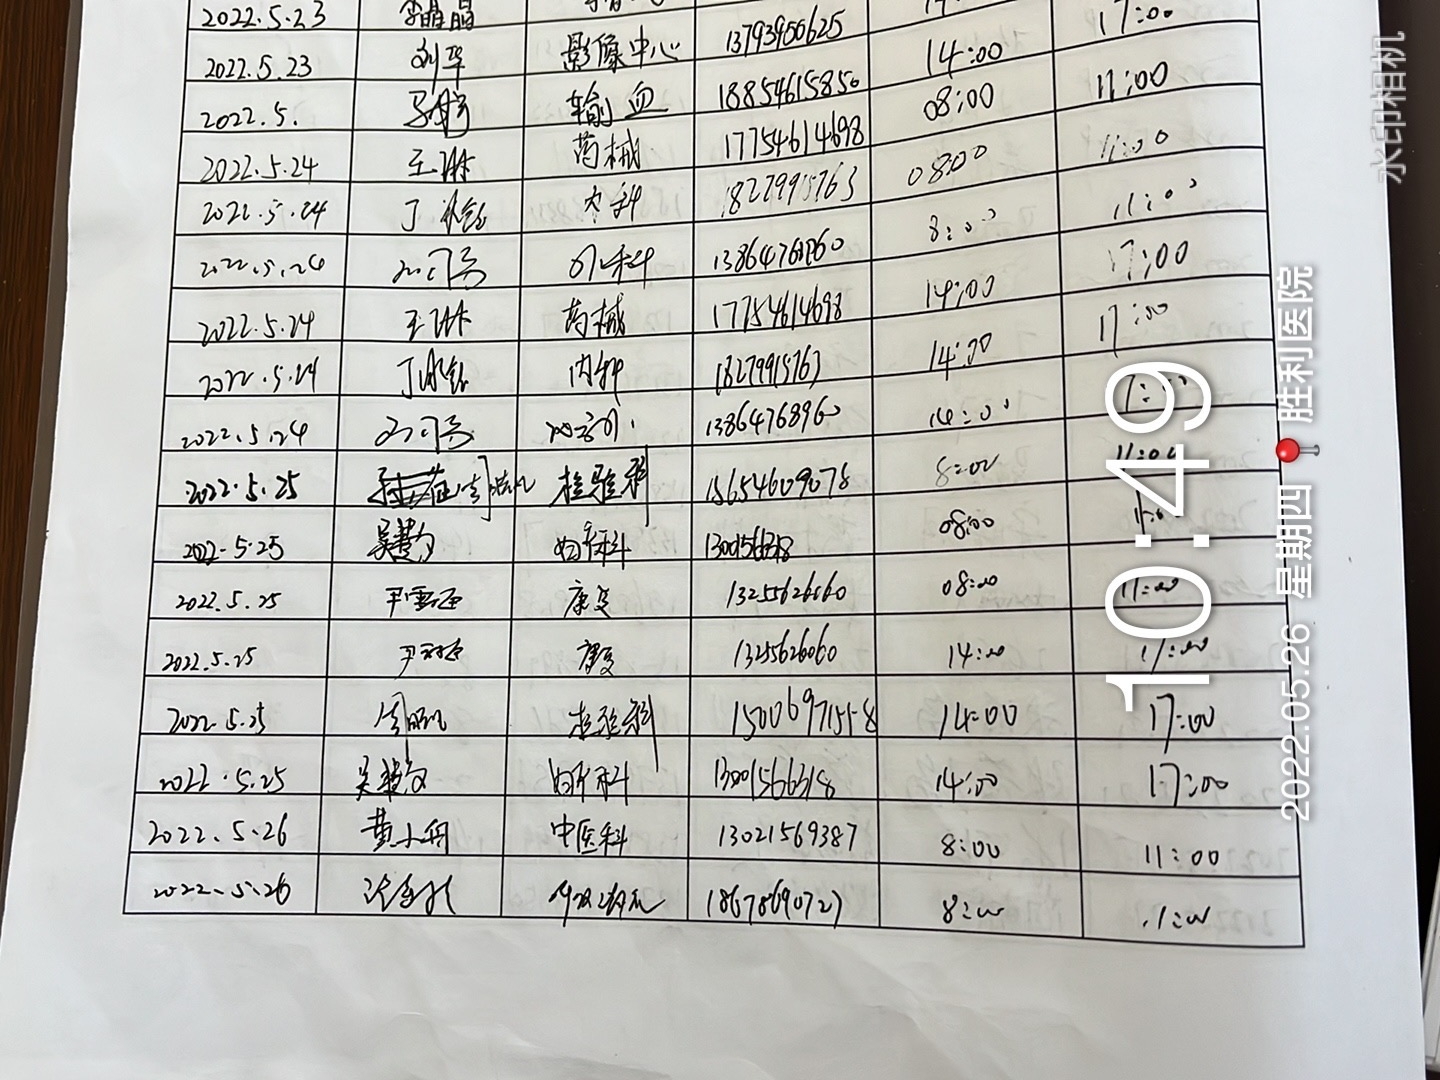 2022.5.23 李晶晶 17:00
2022.5.23 刘华 影像中心 13793960625 14:00
2022.5. 输血 18854615850 08:00 11:00
2022.5.24 王琳 药械 17754614698 08:00 11:00
2022.5.24 丁冰 内科 18279915763 8:00 11:00
2022.5.24 外科 14:00 17:00
2022.5.24 王琳 药械 17754614698 14:00 17:00
2022.5.24 丁冰 内科 18279915763 14:00
2022.5.24 13864768960 8:00 11:00
2022.5.25 检验科 15654609078 08:00
2022.5.25 吴慧 妇产科 08:00 11:00
2022.5.25 尹 康复 13255626060 14:00 17:00
2022.5.25 尹 康复 1325626060
2022.5.25 周 检验科 15006971558 14:00 17:00
2022.5.25 吴慧 妇产科 13001566318 14:00 17:00
2022.5.26 黄小 中医科 13021569387 8:00 11:00
2022.5.26 18678690727 8:00
水印相机
10:49
2022.05.26 星期四 胜利医院